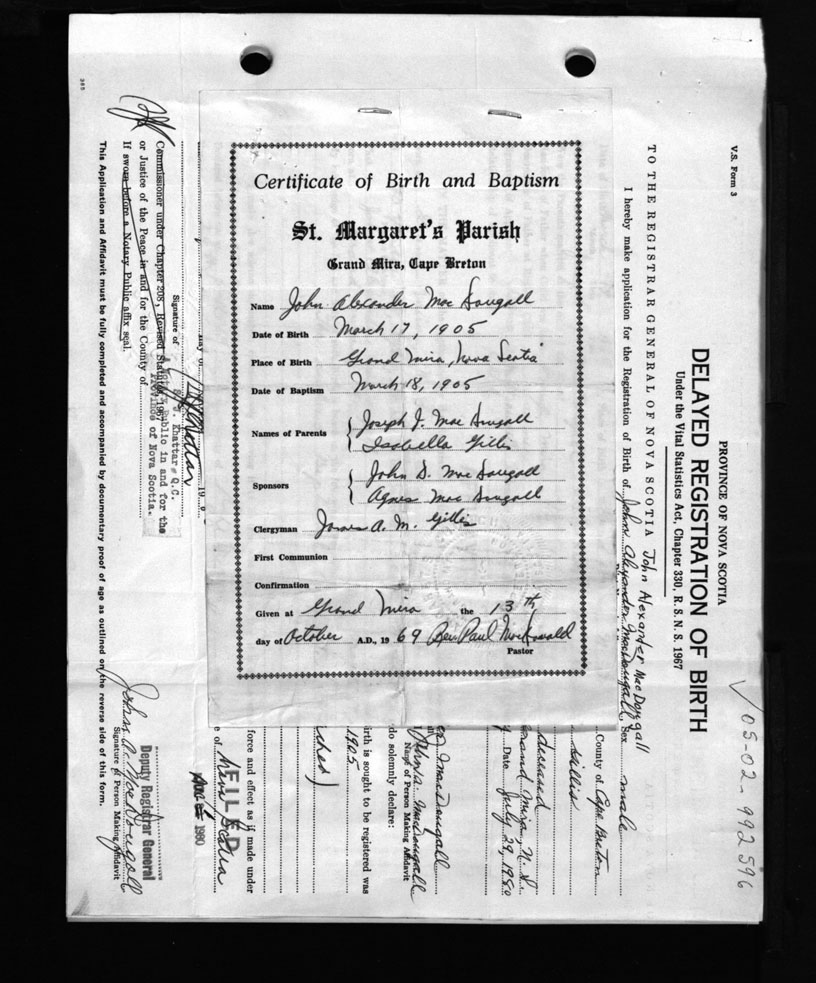 Certificate of Birth and Baptism
St. Margaret's Parish
Grand Mira, Cape Breton
Name John Alexander Mac Dougall
Date of Birth March 17, 1905
Place of Birth Grand Mira, Nova Scotia
Date of Baptism March 18, 1905
Names of Parents { Joseph J. Mac Dougall
Isabella Gillis
Sponsors { John D. Mac Dougall
Agnes Mac Dougall
Clergyman James A. M. Gillis
First Communion
Confirmation
Given at Grand Mira the 13th
day of October A.D., 19 69 Rev. Paul MacDonald
Pastor
V.S. Form 3
PROVINCE OF NOVA SCOTIA
DELAYED REGISTRATION OF BIRTH
Under the Vital Statistics Act, Chapter 330, R.S.N.S. 1967
✓ 05-02-992596
TO THE REGISTRAR GENERAL OF NOVA SCOTIA John Alexander MacDougall
I hereby make application for the Registration of Birth of John Alexander MacDougall Sex male
County of Cape Breton
Gillis
deceased
Grand Mira, N.S.
Date July 29, 1980
MacDougall
John A. MacDougall
Name of Person Making Affidavit
do solemnly declare:
birth is sought to be registered was
1905
force and effect as if made under
of Nova Scotia
FILED
1980
19
Signature of
Khattar, Q.C.
A Notary Public in and for the
Province of Nova Scotia.
Commissioner under Chapter 208, Revised Statutes, 1967
or Justice of the Peace in and for the County of
If sworn before a Notary Public affix seal.
Deputy Registrar General
John A. MacDougall
Signature of Person Making Affidavit
This Application and Affidavit must be fully completed and accompanied by documentary proof of age as outlined on the reverse side of this form.